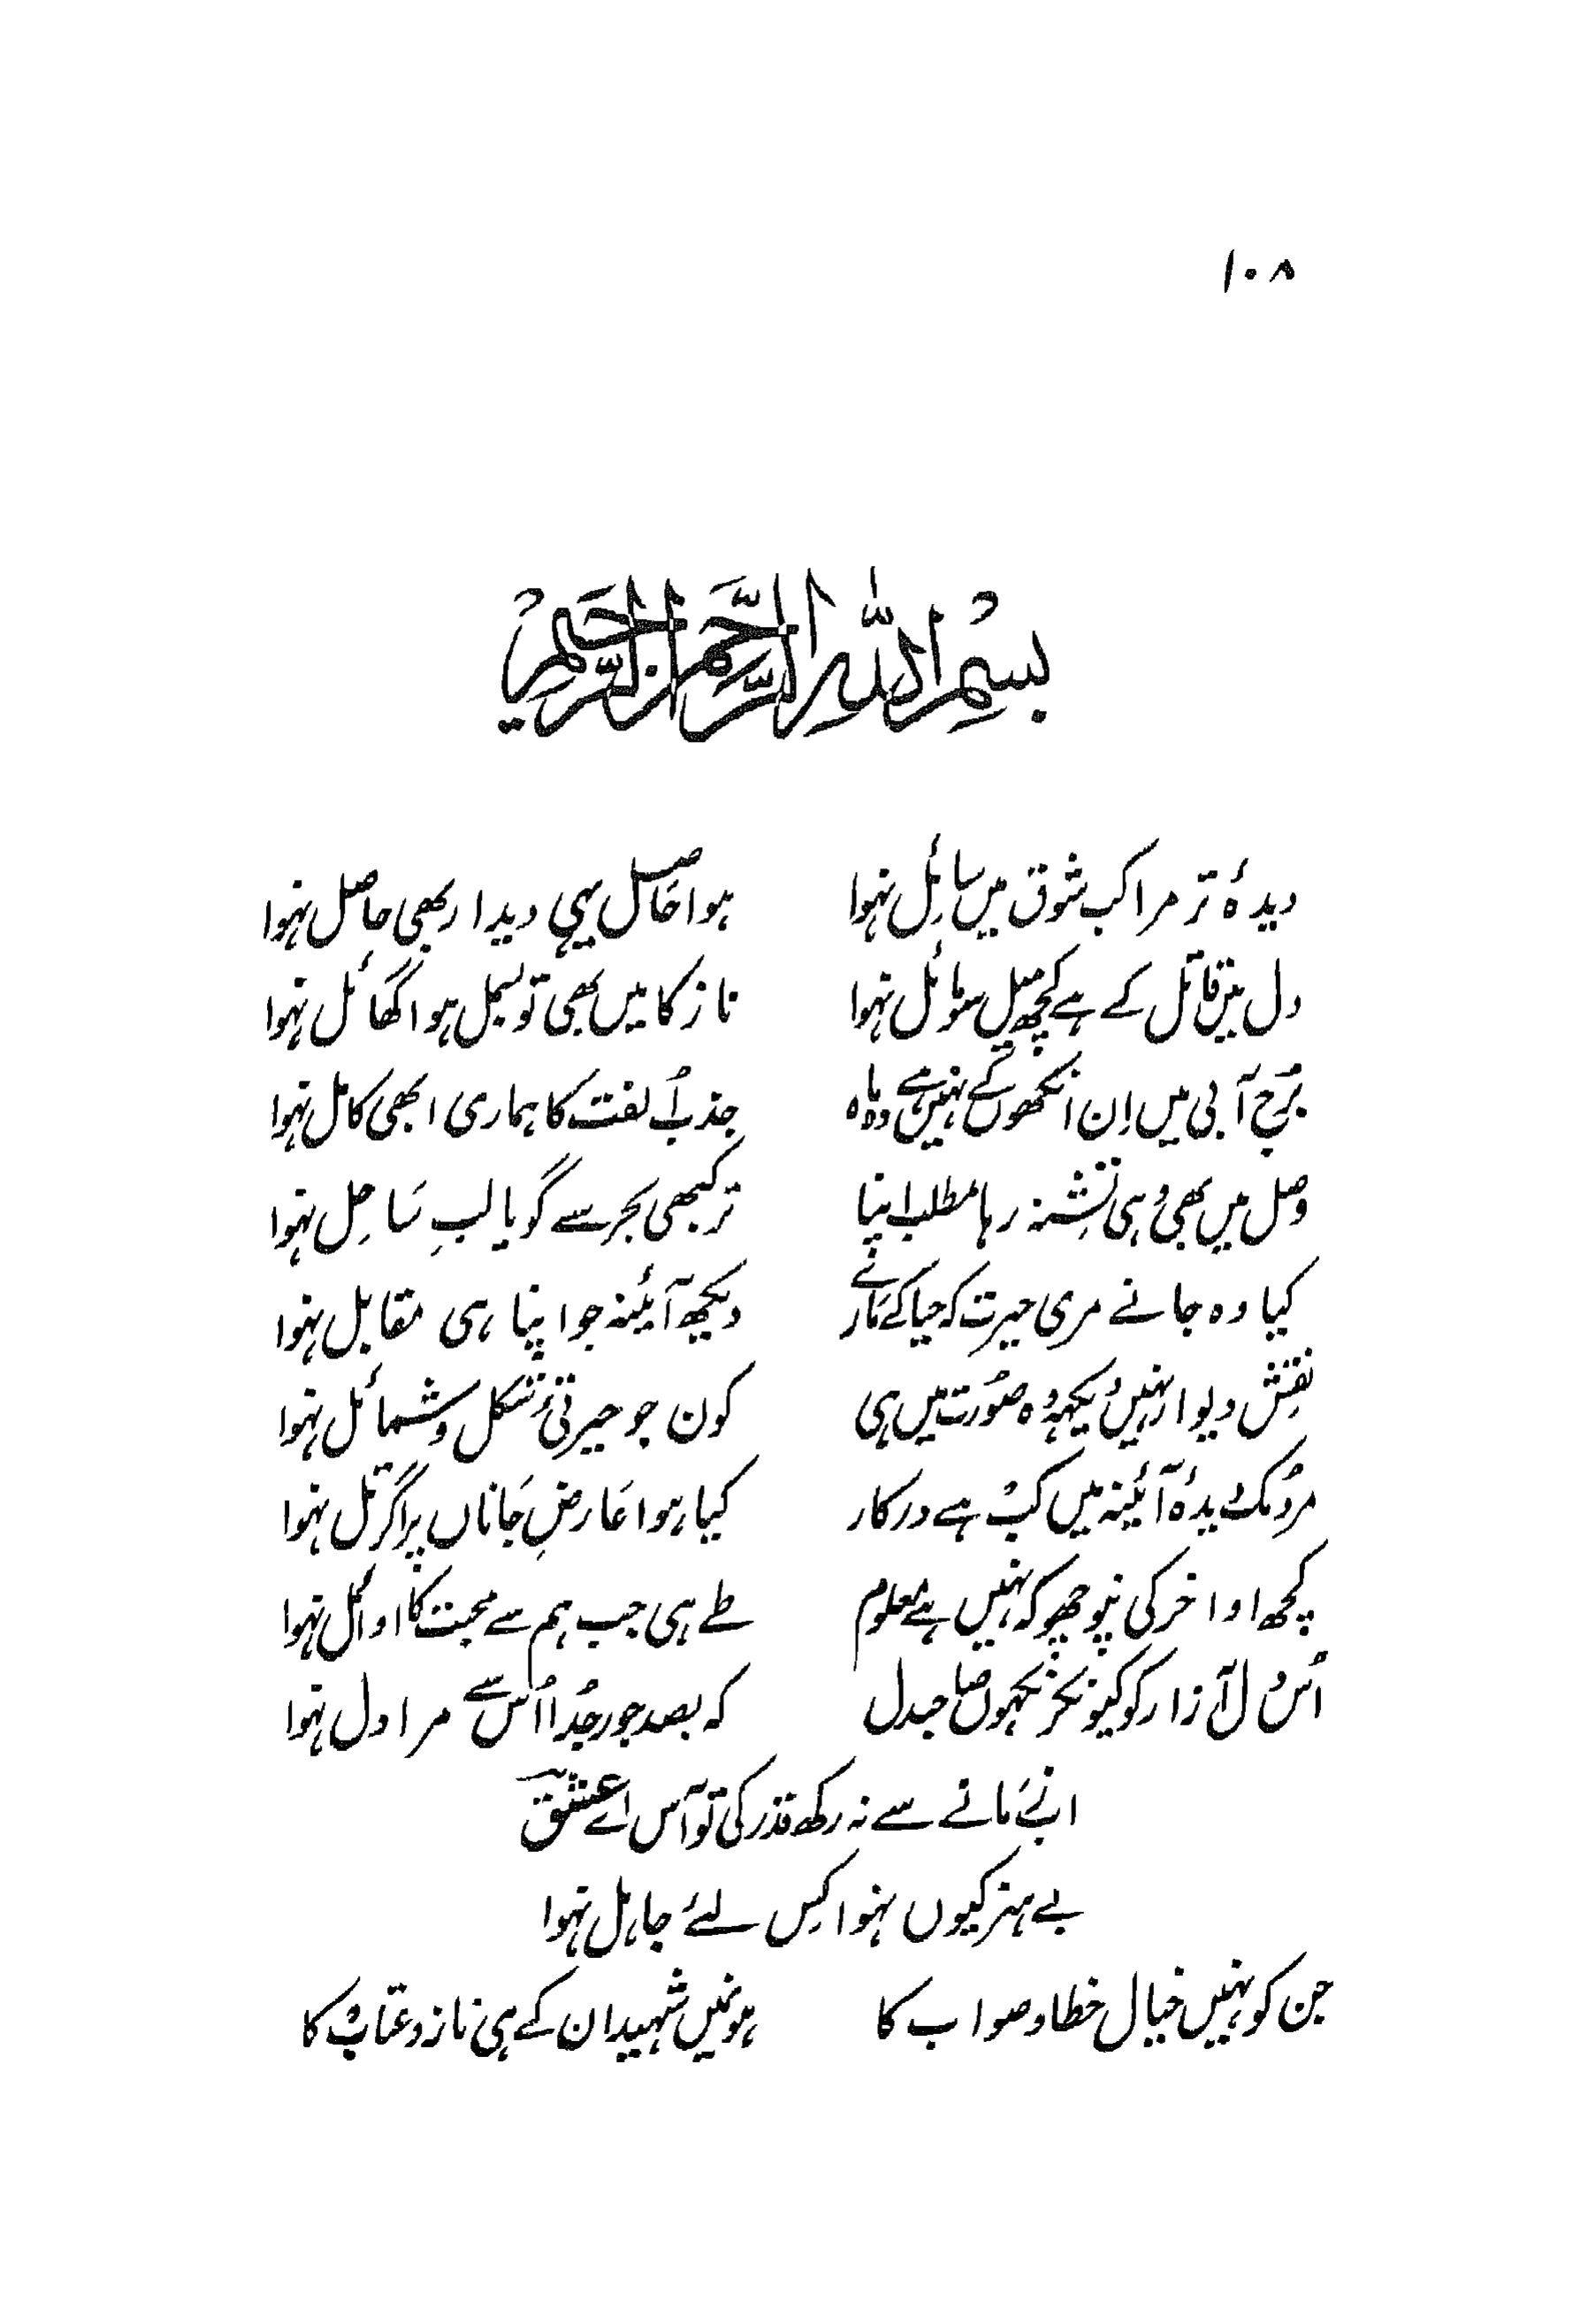 ۱۰۸
بِسْمِ اللّٰہِ الرَّحْمٰنِ الرَّحِیْمِ
دیدۂ تر مرا کب شوق میں سائل نہوا
ہوا حاصل یہی دیدار بھی حاصل نہوا
دل میں قاتل کے ہے کچھ میل سو مائل نہوا
ناز کا میں بھی تو بسمل ہوا گھائل نہوا
بُرج آبی میں اِن آنکھوں کے نہیں ہے وہ ماہ
جذب اُلفت کا ہماری ابھی کامل نہوا
وصل میں بھی وُہی تشنہ رہا مطلب اپنا
تر کبھی بحر سے گویا لبِ ساحِل نہوا
کیا وہ جانے مری حیرت کہ حیا کے مارے
دیکھ آئینہ جو اپنا ہی مقابل نہوا
نقش دیوار نہیں دیکہہ وُہ صُورت میں ہی
کون جو حیرتیٔ شکل و شمائل نہوا
مردُمک دیدۂ آئینہ میں کب ہے درکار
کیا ہوا عارضِ جاناں پر اگر تل نہوا
کچھ اواخر کی نپوچھو کہ نہیں ہے معلوم
طے ہی جب ہم سے محبت کا اوائل نہوا
اُس دل آزار کو کیونکر نکہوں صاحبدل
کہ بصد جور جُدا اُس سے مرا دل نہوا
اب زمانے سے نہ رکھ قدر کی تو آس اے عشق
بے ہنر کیوں نہوا کِس لئے جاہل نہوا
جن کو نہیں خیال خطا و صواب کا
ہونمیں شہید ان کے ہی ناز و عتاب کا